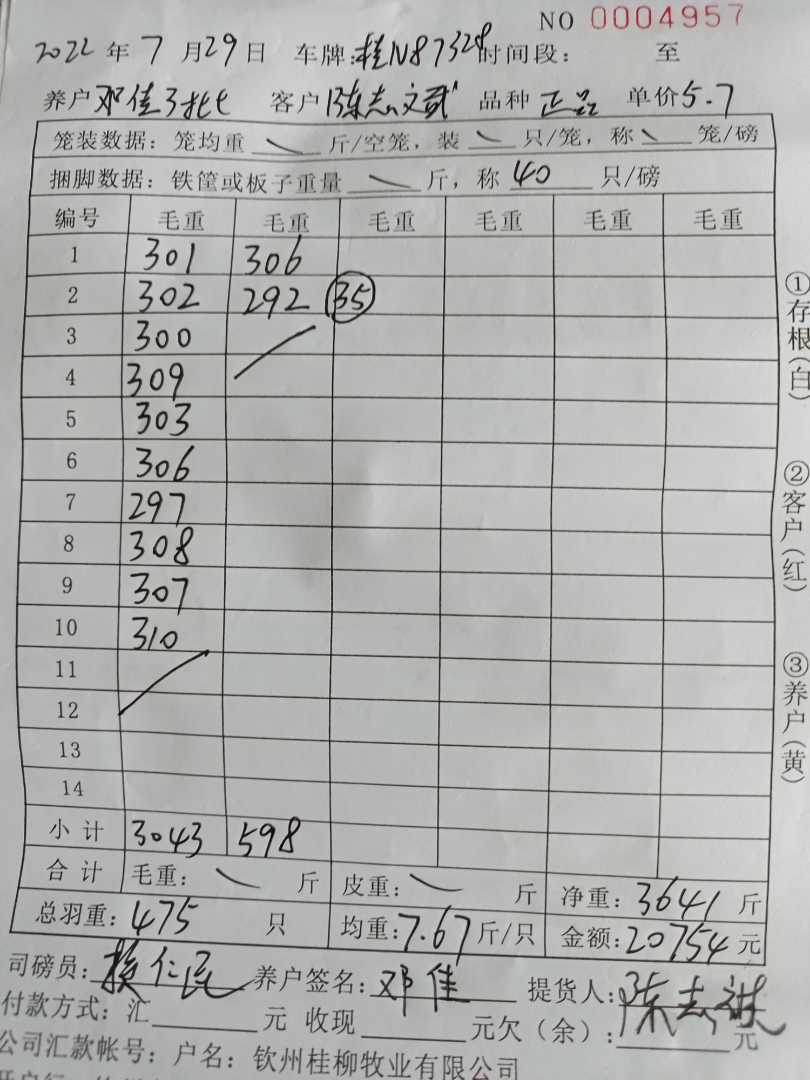 NO 0004957
2022 年 7 月 29 日 车牌: 桂N87328 时间段: 至
养户 邓佳 客户 陈志武 品种 正品 单价 5.7
笼装数据: 笼均重 斤/空笼, 装 只/笼, 称 笼/磅
捆脚数据: 铁筐或板子重量 斤, 称 40 只/磅
编号 毛重 毛重 毛重 毛重 毛重 毛重
1 301 306
2 302 292 35
3 300
4 309
5 303
6 306
7 297
8 308
9 307
10 310
11
12
13
14
小计 3043 598
合计 毛重: 斤 皮重: 斤 净重: 3641 斤
总羽重: 475 只 均重: 7.67 斤/只 金额: 20754 元
司磅员: 仁民 养户签名: 邓佳 提货人: 陈志
付款方式: 汇 元 收现 元欠(余): 元
公司汇款帐号: 户名: 钦州桂柳牧业有限公司
①存根(白)
②客户(红)
③养户(黄)